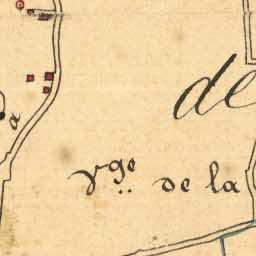 de
a
vge de la